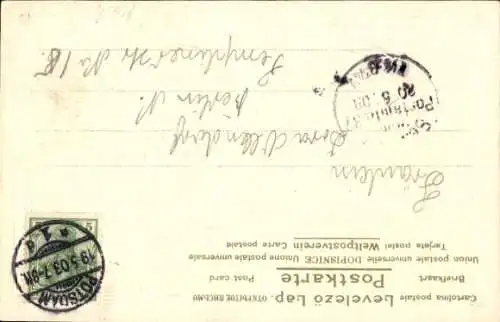 Cartolina postale Levelező Lap. ОТКРЫТОЕ ПИСЬМО
Briefkaart Postkarte Post card
Union postale universelle DOPISNICE Unione postale universale
Tarjeta postal Weltpostverein Carte postale
Fräulein
Dora
Berlin N.
Templiner str No 18.
POTSDAM
19.5.03.7-8N.
* 1 d
5